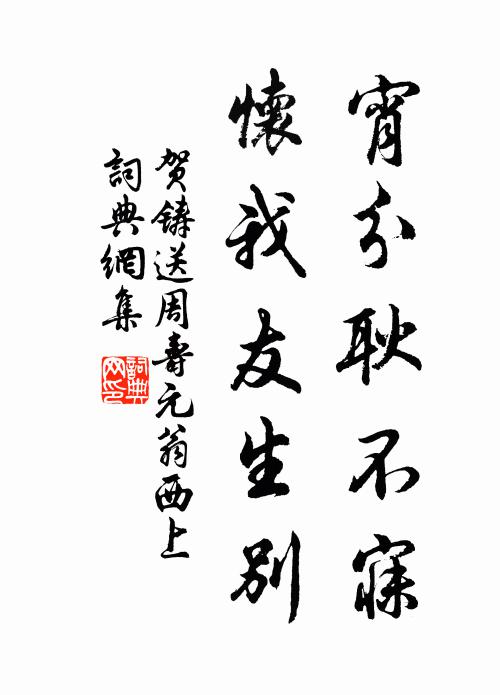 宵分耿不寐
懷我友生别
贺鑄送周壽元翁西上
詞典網集
詞典
网印